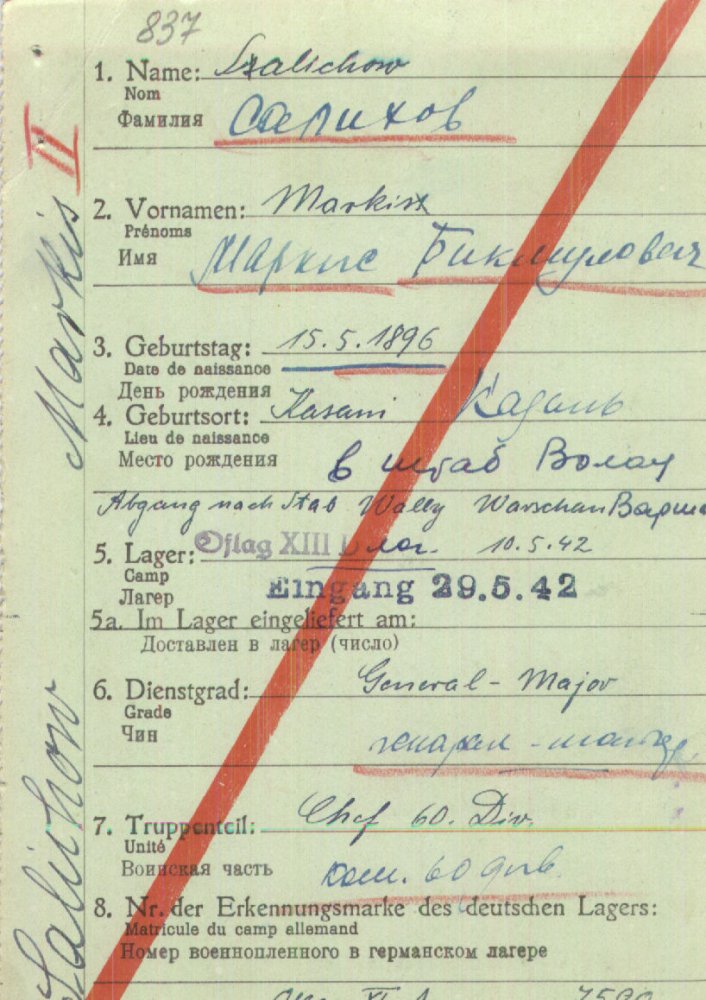 837
1. Name: Szalichow
Nom
Фамилия Салихов
2. Vornamen: Markisz
Prénoms
Имя Маркис Бикмулович
3. Geburtstag: 15.5.1896
Date de naissance
День рождения
4. Geburtsort: Kasani Казань
Lieu de naissance
Место рождения
в штаб Волли
Abgang nach Stab Wally Warschau
5. Lager: Oflag XIII 10.5.42
Camp
Лагерь
Eingang 29.5.42
5a. Im Lager eingeliefert am:
Доставлен в лагерь (число)
6. Dienstgrad: General-Major
Grade
Чин
генерал-майор
7. Truppenteil: Chef 60. Div.
Unité
Воинская часть ком. 60 див.
8. Nr. der Erkennungsmarke des deutschen Lagers:
Matricule du camp allemand
Номер военнопленного в германском лагере
Salichow Markis II